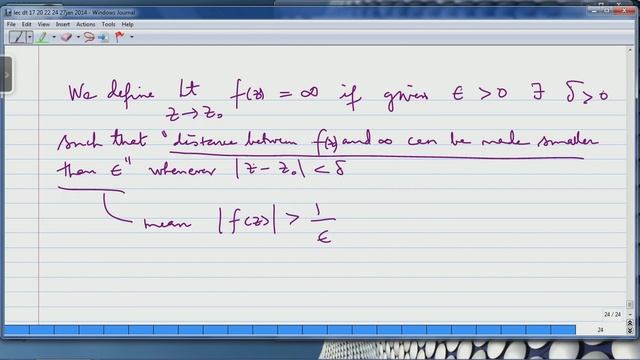 lec dt 17 20 22 24 27jan 2014 - Windows Journal
File Edit View Insert Actions Tools Help
We define Lt f(z) = ∞ if given ϵ > 0 ∃ δ > 0
z→z₀
such that "distance between f(z) and ∞ can be made smaller
than ϵ" whenever |z - z₀| < δ
mean |f(z)| > 1/ϵ
24 / 24
24